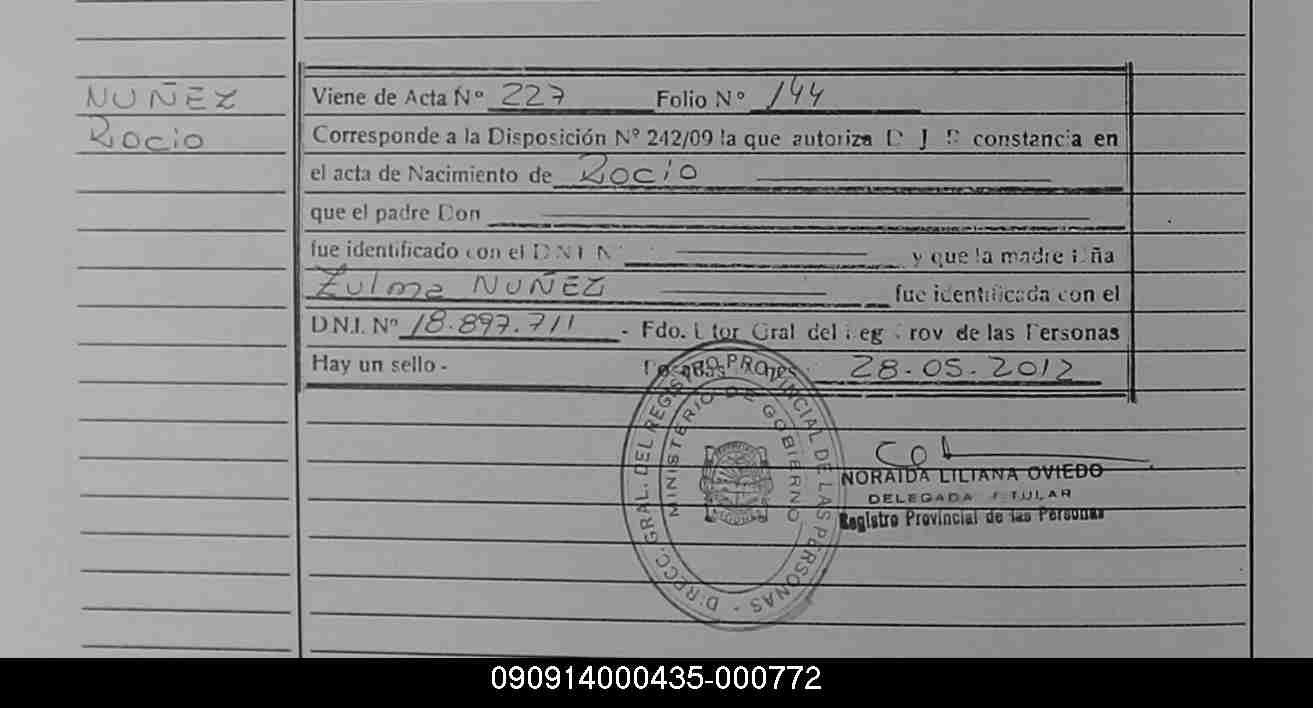 NUÑEZ
Rocio
Viene de Acta Nº 227 Folio Nº 144
Corresponde a la Disposición Nº 242/09 la que autoriza D J R constancia en
el acta de Nacimiento de Rocío
que el padre Don
fue identificado con el D.N.I. N y que la madre
Zulma NUÑEZ fue identificada con el
D.N.I. Nº 18.897.711 - Fdo. Gral del de las Personas
Hay un sello - 28.05.2012
DIRECC. GRAL. DEL REGISTRO PROVINCIAL DE LAS PERSONAS -
MINISTERIO DE GOBIERNO
NORAIDA LILIANA OVIEDO
DELEGADA TITULAR
Registro Provincial de las Personas
090914000435-000772